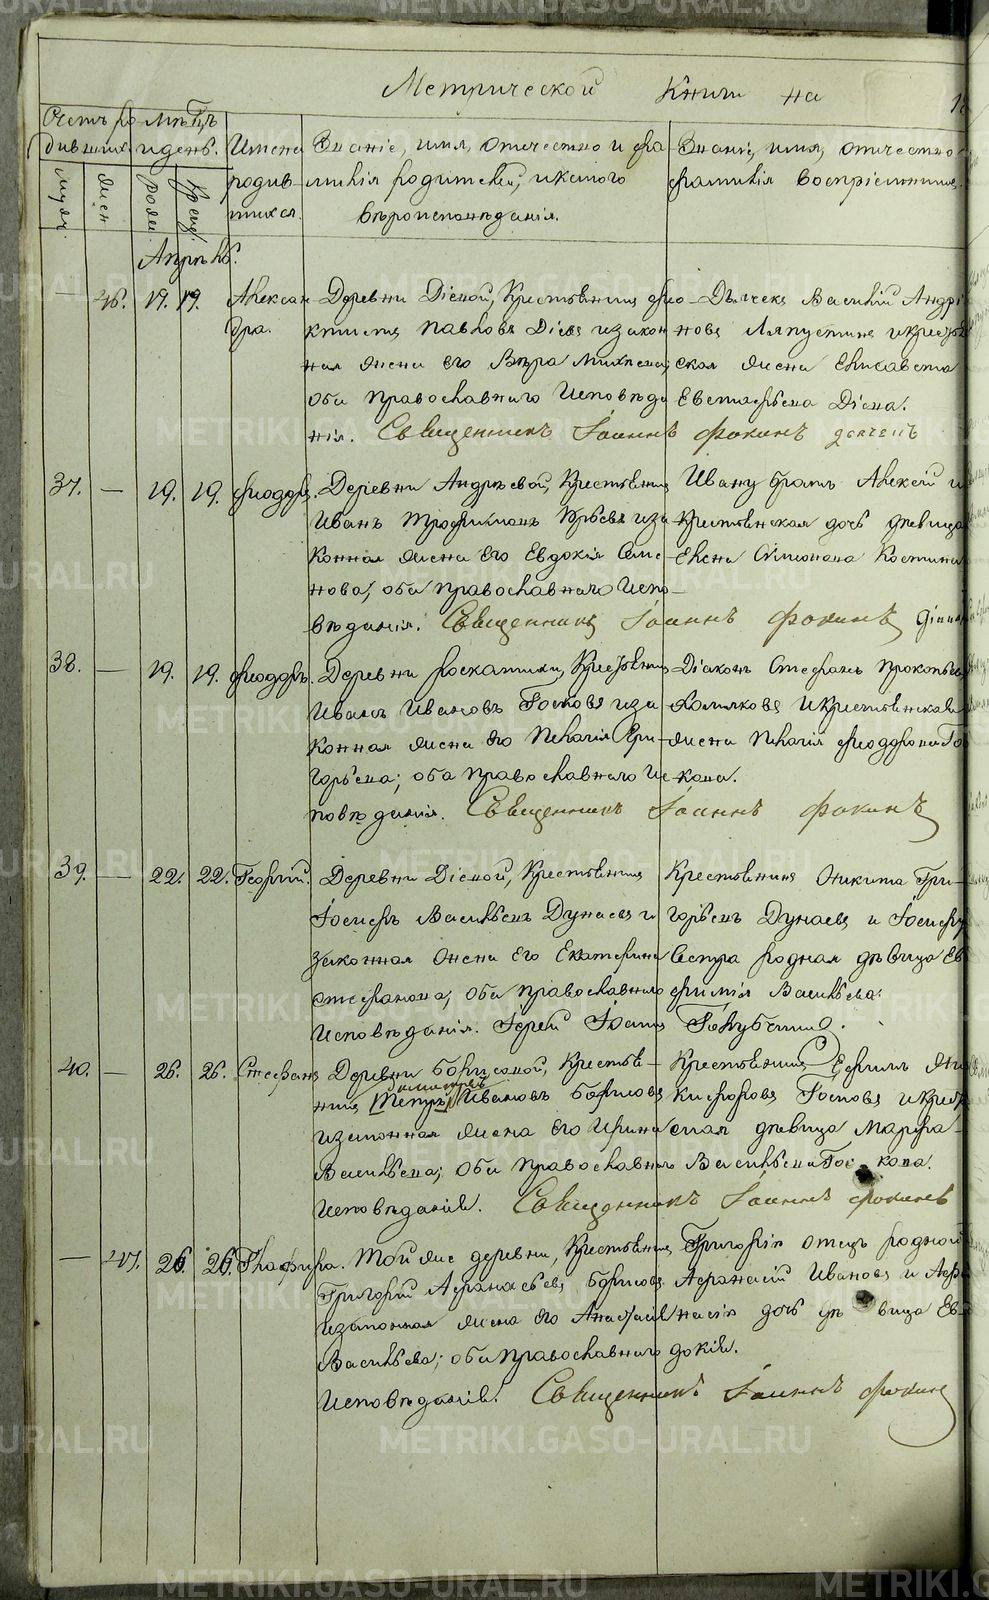 Метрической Книги на 18
Счетъ ро-
дившихся.
Мѣсяцъ
и день.
Имена
родив-
шихся.
Званіе, имя, отчество и фа-
милія родителей, и какого
вѣроисповѣданія.
Званіе, имя, отчество и
фамилія воспріемниковъ.
муж.
жен.
рожд.
крещ.
Апрѣль.
— 46. 19. 19. Алексан-
дра.
Деревни Діевой, Крестьянинъ Фео-
ктистъ Павловъ Діевъ и закон-
ная жена его Вѣра Михеева,
оба Православнаго Исповѣда-
нія. Священникъ Іоаннъ Фокинъ
Дьячекъ Василій Андрі
новъ Ляпустинъ и крестьян
ская жена Елисавета
Евстафьева Діева.
37. — 19. 19. Феодоръ.
Деревни Андрѣевой, Крестьянинъ
Иванъ Трофимовъ и за-
конная жена его Евдокія Семе-
нова, оба Православнаго Испо-
вѣданія. Священникъ Іоаннъ Фокинъ
Ивану братъ Алексій и
Крестьянская дочь дѣвица
Елена Симонова Костина
38. — 19. 19. Феодоръ.
Деревни Роскатихи, Крестьянинъ
Иванъ Ивановъ Госковъ и за-
конная жена его Пелагія Гри-
горьева; оба Православнаго Ис-
повѣданія. Священникъ Іоаннъ Фокинъ
Діаконъ Стефанъ Прокопьевъ
Хомяковъ и Крестьянская
жена Пелагія Феодорова Гос
кова.
39. — 22. 22. Георгій.
Деревни Діевой, Крестьянинъ
Іосифъ Васильевъ Дунаевъ и
законная жена его Екатерина
Стефанова, оба Православнаго
Исповѣданія. Іерей Іоаннъ Голубчиковъ.
Крестьянинъ Никита Гри-
горьевъ Дунаевъ и Іосифу
Сестра родная дѣвица Ев
фимія Васильева.
40. — 26. 26. Стефанъ
Деревни Борисовой, Крестья-
нинъ Петръ Ивановъ Борисовъ
и законная жена его Ирина
Васильева; оба Православнаго
Исповѣданія. Священникъ Іоаннъ Фокинъ
Крестьянинъ Ефимъ Ни
кифоровъ Госковъ и крестьян
ская дѣвица Марфа
Васильева Госкова.
— 47. 26. 26. Глафира.
Той же деревни, Крестьянинъ
Григорій Афанасьевъ Борисовъ
и законная жена его Анастасія
Васильева; оба Православнаго
Исповѣданія. Священникъ Іоаннъ Фокинъ
Григорія отецъ родной
Афанасій Ивановъ и Афа
насія дочь дѣвица Ев
докія.
METRIKI.GASO-URAL.RU